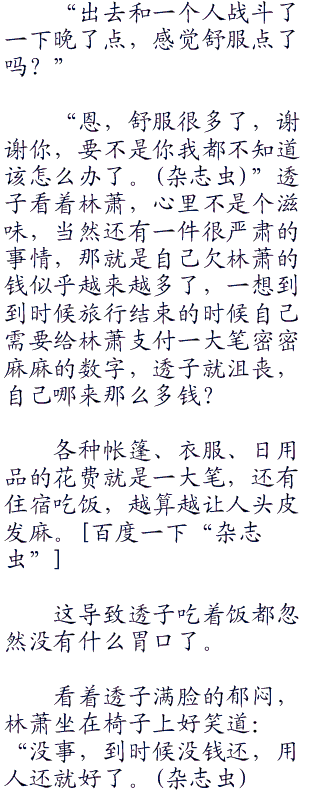 “出去和一个人战斗了
一下晚了点，感觉舒服点了
吗？”
“恩，舒服很多了，谢
谢你，要不是你我都不知道
该怎么办了。(杂志虫)”透
子看着林萧，心里不是个滋
味，当然还有一件很严肃的
事情，那就是自己欠林萧的
钱似乎越来越多了，一想到
到时候旅行结束的时候自己
需要给林萧支付一大笔密密
麻麻的数字，透子就沮丧，
自己哪来那么多钱？
各种帐篷、衣服、日用
品的花费就是一大笔，还有
住宿吃饭，越算越让人头皮
发麻。[百度一下“杂志
虫”]
这导致透子吃着饭都忽
然没有什么胃口了。
看着透子满脸的郁闷，
林萧坐在椅子上好笑道：
“没事，到时候没钱还，用
人还就好了。(杂志虫)